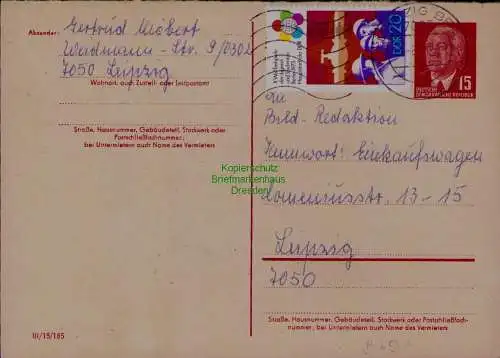 Absender: Gertrud Miebert
Weidmann-Str. 9/0302
7050 Leipzig
Wohnort, auch Zustell- oder Leitpostamt
Straße, Hausnummer, Gebäudeteil, Stockwerk oder
Postschließfachnummer;
bei Untermietern auch Name des Vermieters
III/15/185
DDR 20
15
DEUTSCHE
DEMOKRATISCHE REPUBLIK
An
Bild-Redaktion
Kennwort: Einkaufswagen
Comeniusstr. 13-15
Leipzig
7050
Straße, Hausnummer, Gebäudeteil, Stockwerk oder Postschließfach-
nummer; bei Untermietern auch Name des Vermieters
Kopierschutz
Briefmarkenhaus
Dresden